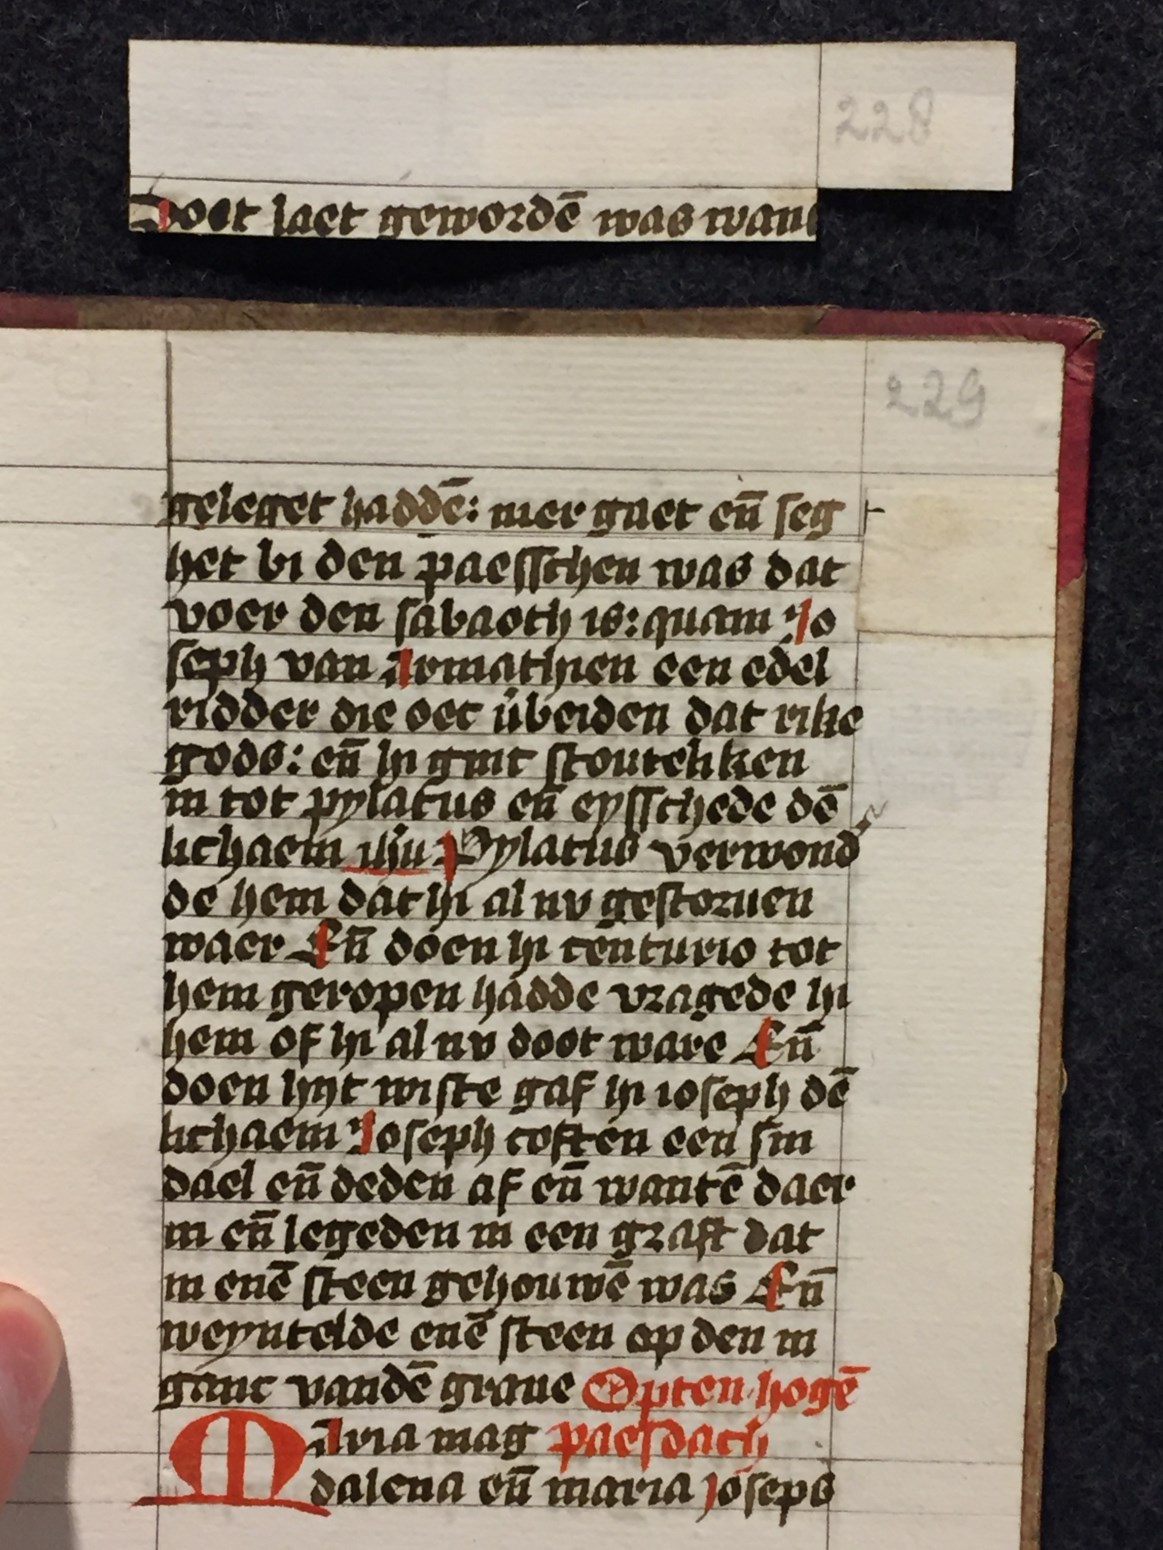 228
Doet laet gewordē was want
229
geleget haddē: mer gaet eñ seg
het bi den paesschen was dat
voer den sabaoth is: quam Jo
seph van Armathien een edel
ridder die oec v̄beiden dat rike
gods: eñ hi ginc stoutelikken
in tot pylatus eñ eysschede dē
lichaem ihū Pylatus verwond
de hem dat hi al nv gestoruen
waer Eñ doen hi centurio tot
hem geropen hadde vragede hi
hem of hi al nv doot ware Eñ
doen hijt wiste gaf hi ioseph dē
lichaem Joseph coften een sin
dael eñ deden af eñ wantē daer
in eñ legeden in een graft dat
in enē steen gehouwē was Eñ
weyntelde enē steen op den in
ganc vandē graue Opten hogē
Maria mag paesdach
dalena eñ maria josephs